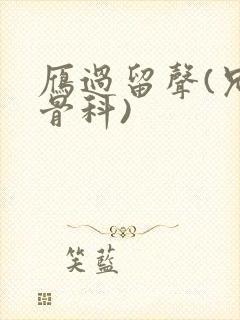 雁過留聲(兄
骨科)
笑藍